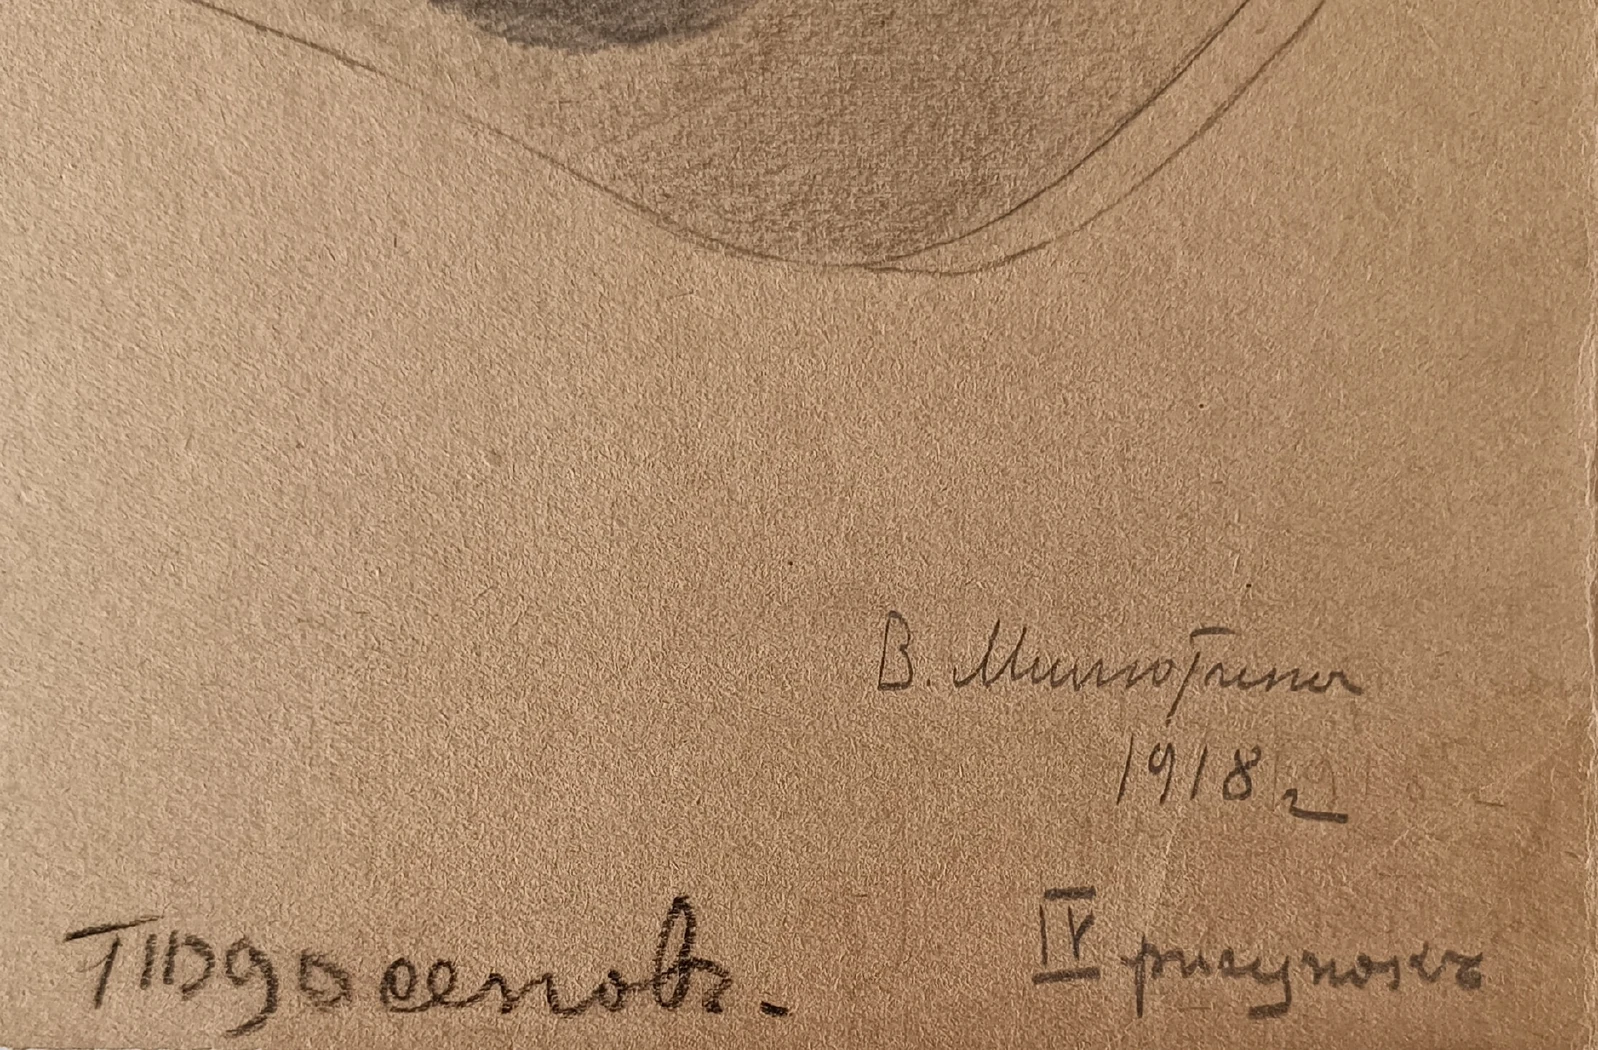 В. Милютина
1918 г
IV рисунокъ
Подосеновъ.